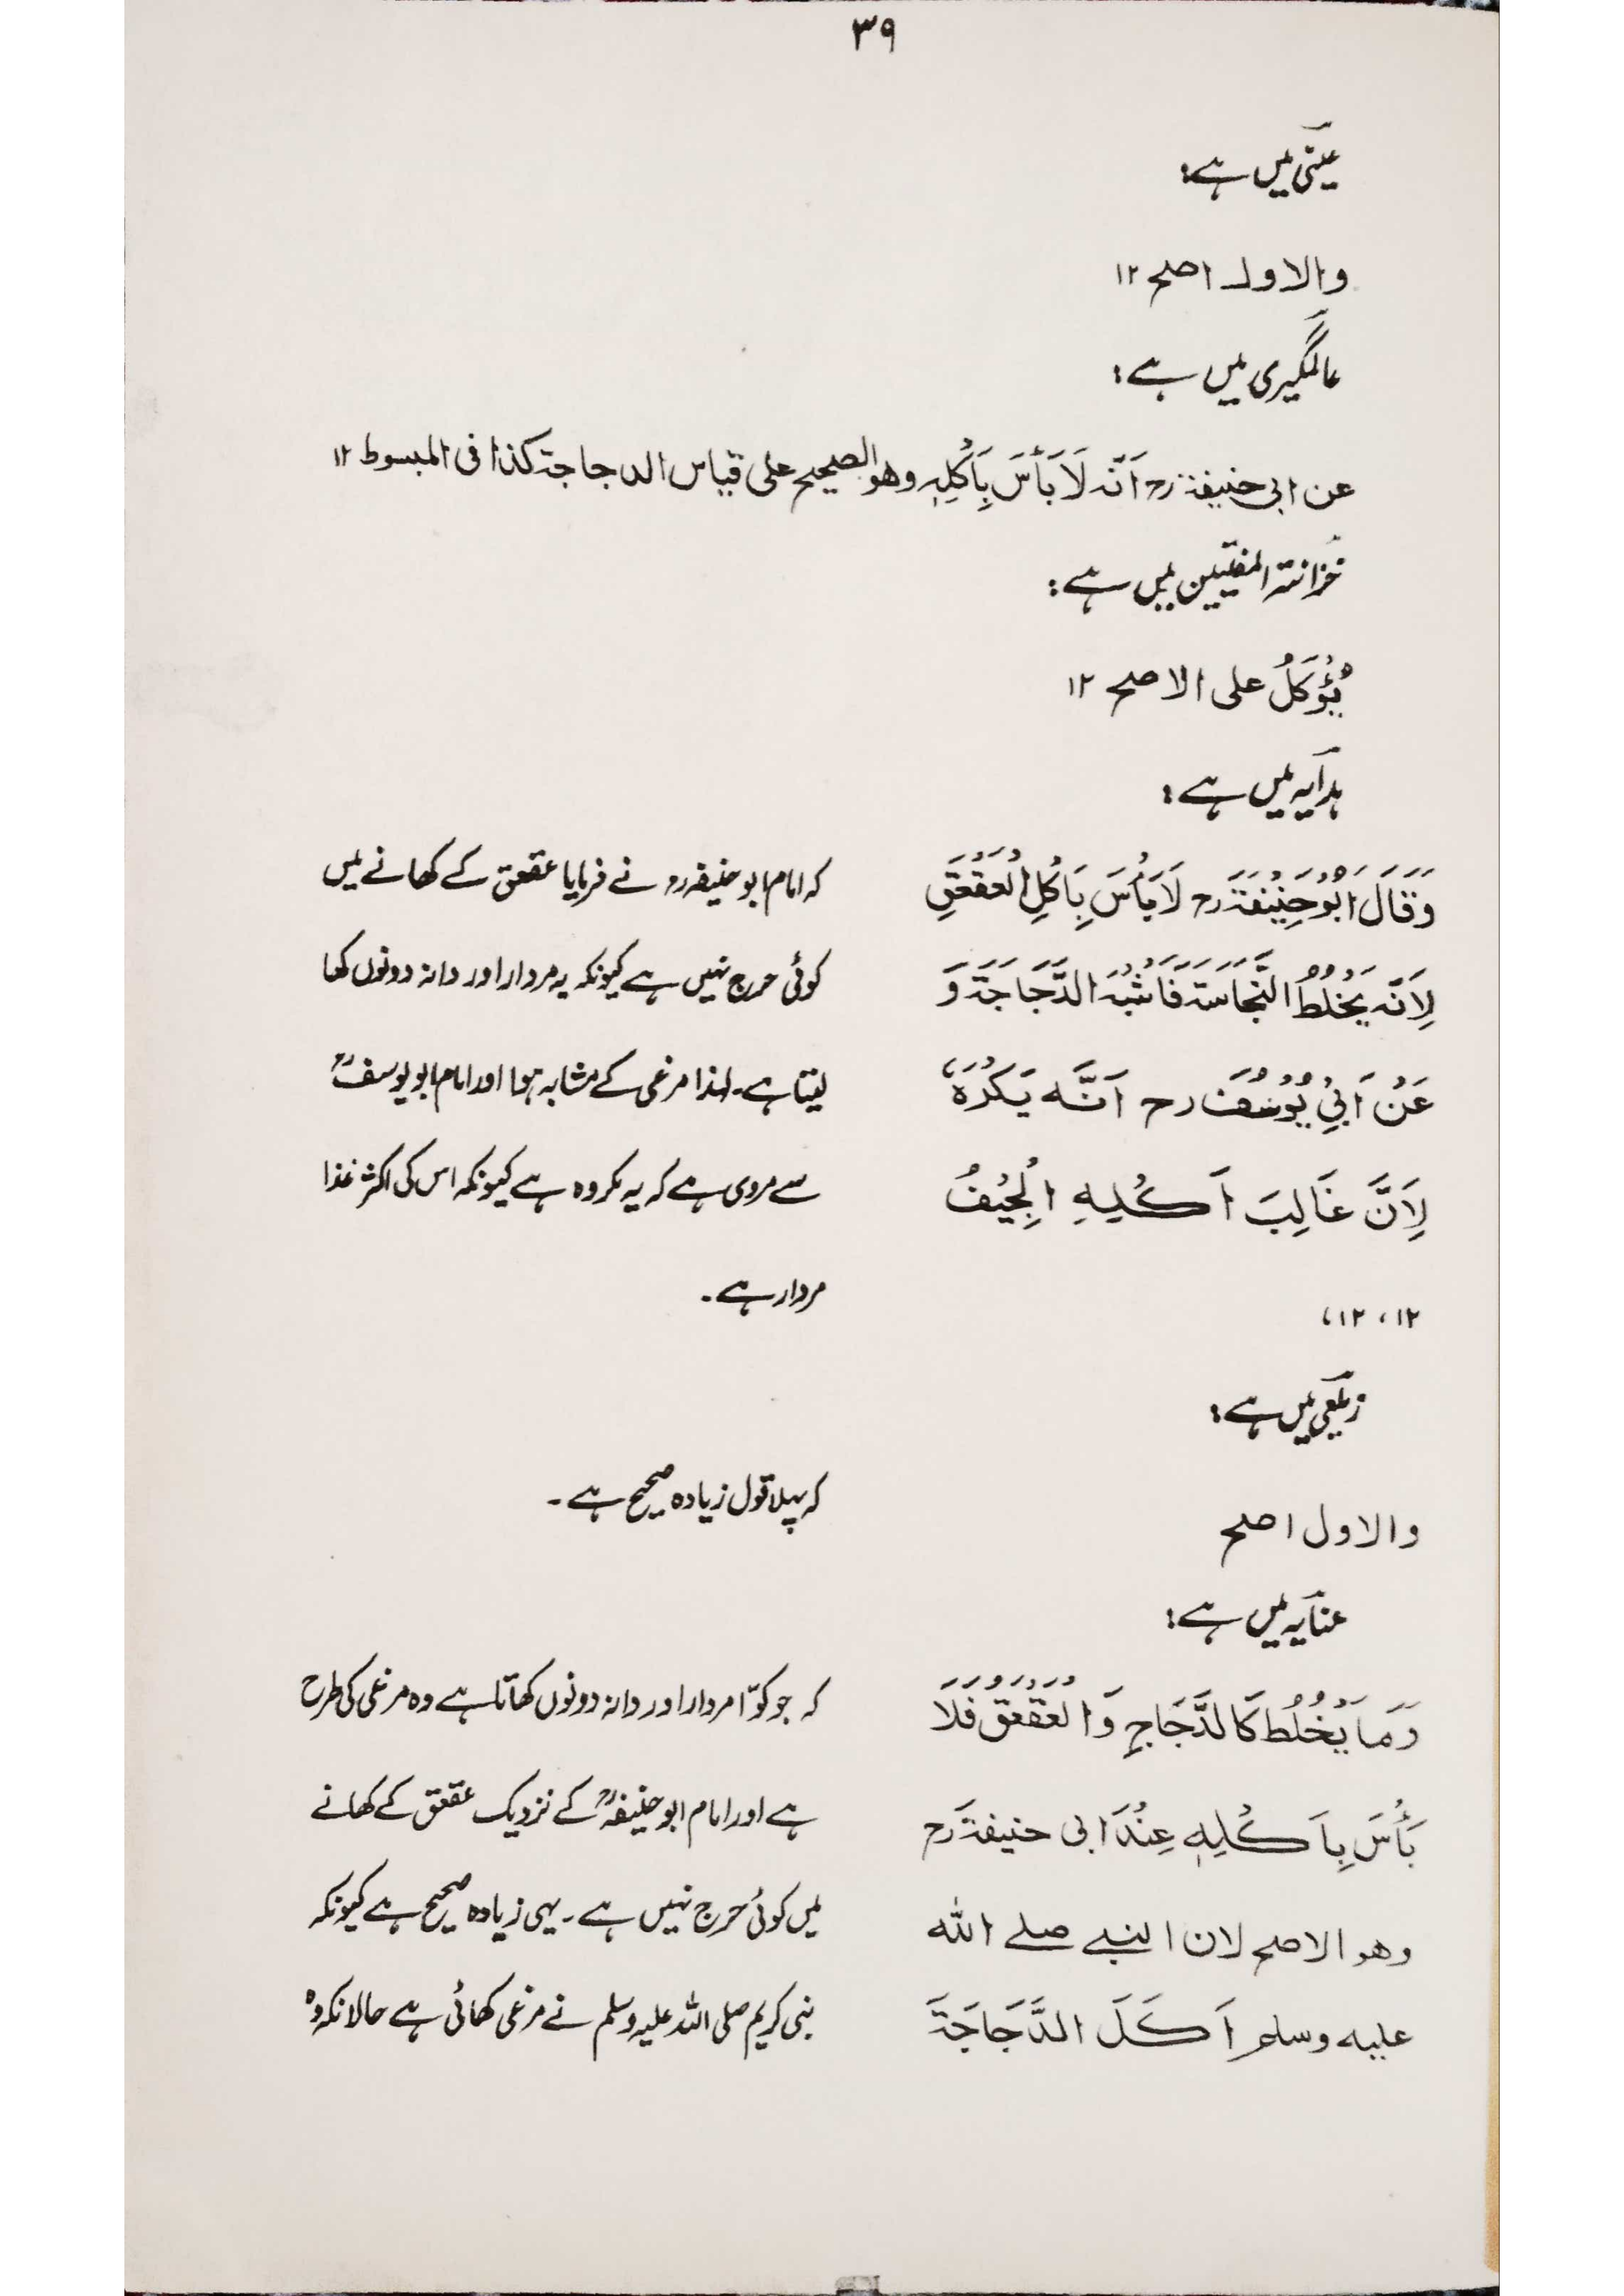 ۳۹
عینی میں ہے:
والاول اصح ۱۲
عالمگیری میں ہے:
عن ابی حنیفۃ رح اَنَّہ لَا بَأْسَ بِاَکْلِہٖ وھو الصحیح علی قیاس الدجاجۃ کذا فی المبسوط ۱۲
خزانتہ المفتیین میں ہے:
یُؤْکَلُ علی الاصح ۱۲
ہدایہ میں ہے:
وَقَالَ اَبُوْحَنِیْفَۃَ رح لَا بَأْسَ بِاَکْلِ الْعَقْعَقِ
لِاَنَّہ یَخْلُطُ النَّجَاسَۃَ فَاَشْبَہَ الدَّجَاجَۃَ وَ
عَنْ اَبِیْ یُوْسُفَ رح اَنَّہ یَکْرَہُ،
لِاَنَّ غَالِبَ اَکْلِہِ الْجِیْفُ
۱۲، ۱۲،
کہ امام ابو حنیفہ رح نے فرمایا عقعق کے کھانے میں
کوئی حرج نہیں ہے کیونکہ یہ مردار اور دانہ دونوں کھا
لیتا ہے۔ لہذا مرغی کے مشابہ ہوا اور امام ابو یوسفؒ
سے مروی ہے کہ یہ مکروہ ہے کیونکہ اس کی اکثر غذا
مردار ہے۔
زیلعی میں ہے:
والاول اصح
کہ پہلا قول زیادہ صحیح ہے۔
عنایہ میں ہے:
وَمَا یَخْلُطُ کَالدَّجَاجِ وَالْعَقْعَقِ فَلَا
بَأْسَ بِاَکْلِہٖ عِنْدَ ابی حنیفۃَ رح
وھو الاصح لان النبی صلی اللہ
علیہ وسلم اَکَلَ الدَّجَاجَۃَ
کہ جو کوّا مردار اور دانہ دونوں کھاتا ہے وہ مرغی کی طرح
ہے اور امام ابو حنیفہؒ کے نزدیک عقعق کے کھانے
میں کوئی حرج نہیں ہے۔ یہی زیادہ صحیح ہے کیونکہ
نبی کریم صلی اللہ علیہ وسلم نے مرغی کھائی ہے حالانکہ وہ